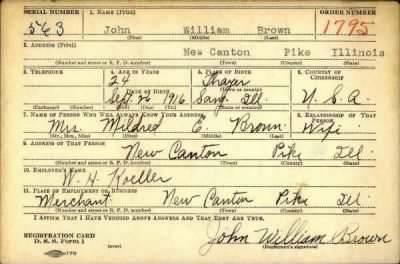 SERIAL NUMBER 1. NAME (Print) ORDER NUMBER
563 John William Brown 1795
(First) (Middle) (Last)
2. ADDRESS (Print)
New Canton Pike Illinois
(Number and street or R. F. D. number) (Town) (County) (State)
3. TELEPHONE 4. AGE IN YEARS 5. PLACE OF BIRTH 6. COUNTRY OF CITIZENSHIP
24 Thayer
DATE OF BIRTH (Town or county)
Sept. 26 1916 Sang. Ill. U. S. A.
(Exchange) (Number) (Mo.) (Day) (Yr.) (State or country)
7. NAME OF PERSON WHO WILL ALWAYS KNOW YOUR ADDRESS 8. RELATIONSHIP OF THAT PERSON
Mrs. Mildred E. Brown Wife
(Mr., Mrs., Miss) (First) (Middle) (Last)
9. ADDRESS OF THAT PERSON
New Canton Pike Ill.
(Number and street or R. F. D. number) (Town) (County) (State)
10. EMPLOYER'S NAME
W. H. Koeller
11. PLACE OF EMPLOYMENT OR BUSINESS
Merchant New Canton Pike Ill
(Number and street or R. F. D. number) (Town) (County) (State)
I AFFIRM THAT I HAVE VERIFIED ABOVE ANSWERS AND THAT THEY ARE TRUE.
REGISTRATION CARD
D. S. S. Form 1 (over) John William Brown
(Registrant's signature)